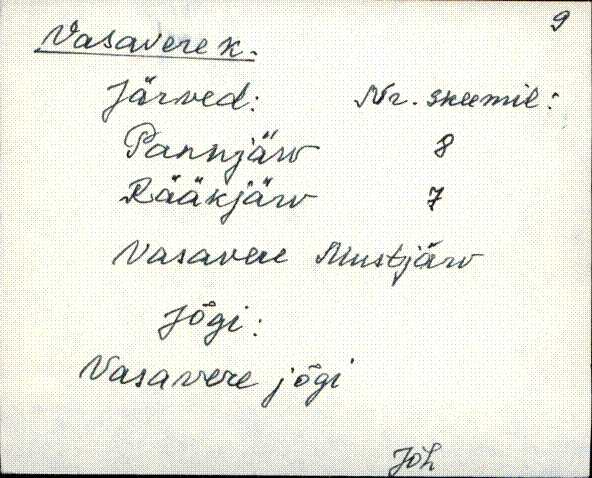 9
Vasavere k.
Järved: Nr. skeemil:
Pannjärv 8
Rääkjärv 7
Vasavere Mustjärv
Jõgi:
Vasavere jõgi
Jõh